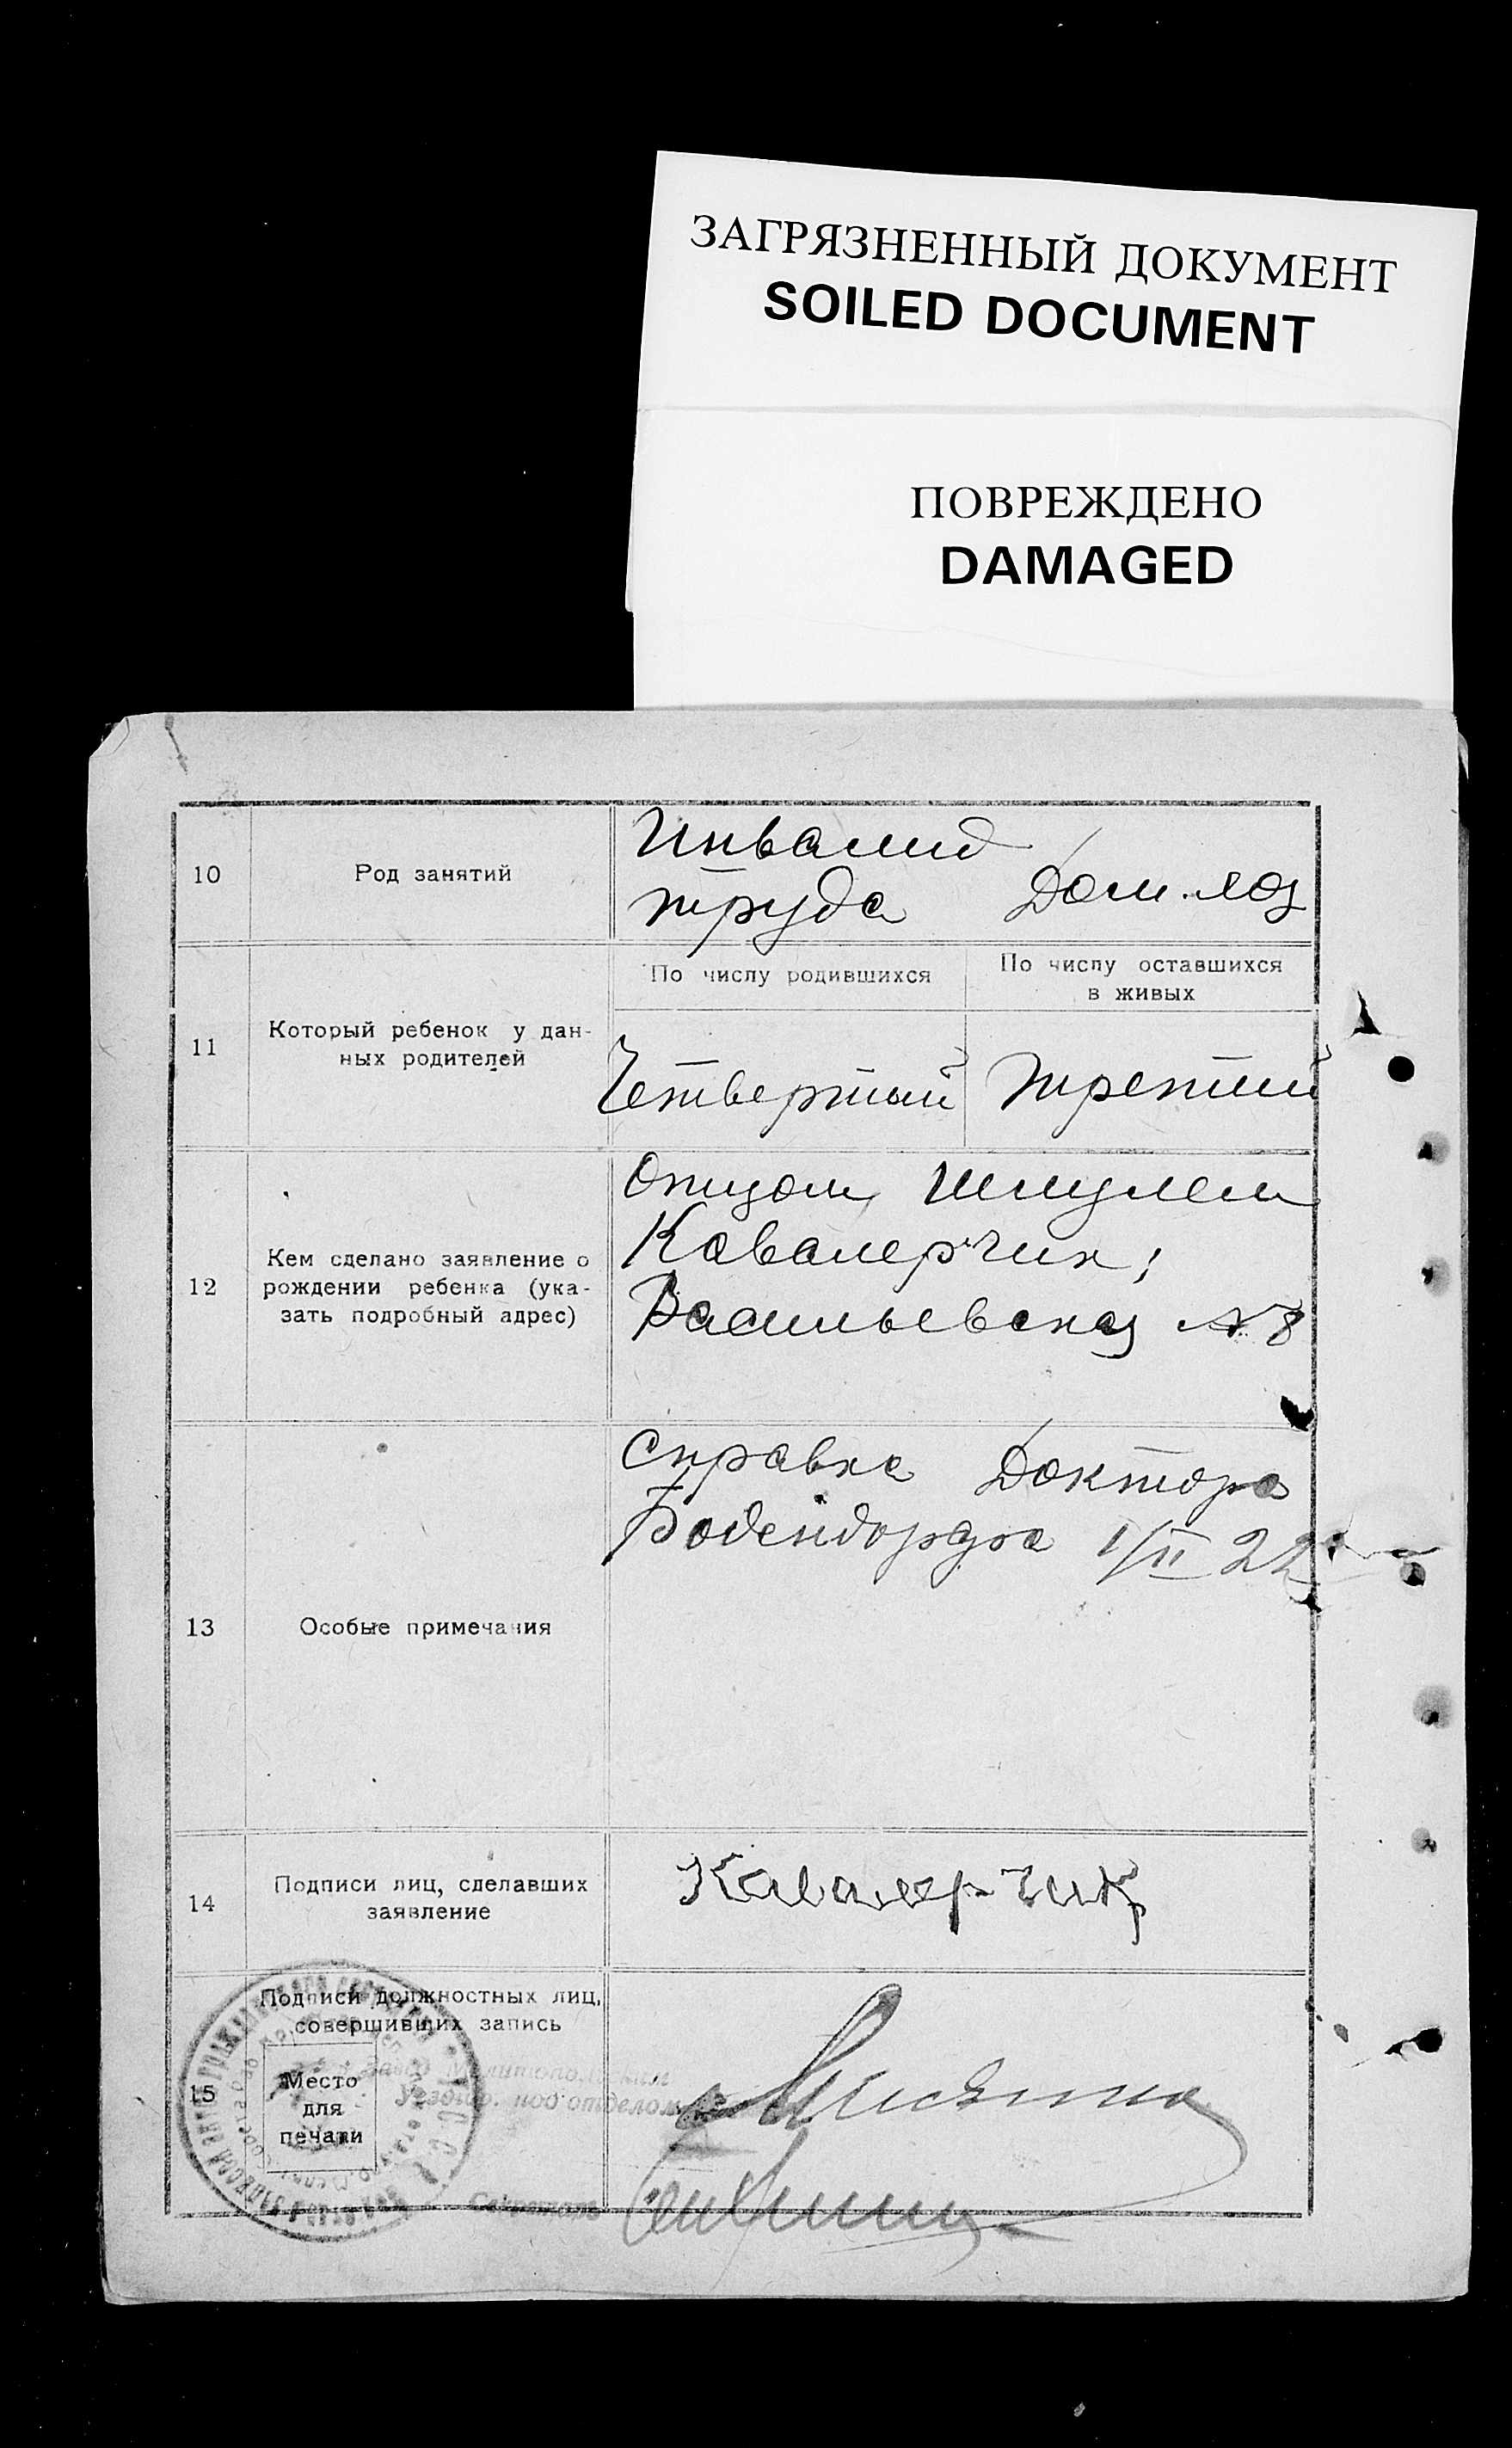 ЗАГРЯЗНЕННЫЙ ДОКУМЕНТ
SOILED DOCUMENT
ПОВРЕЖДЕНО
DAMAGED
10
Род занятий
Инвалид
труда
Дом. хоз
11
Который ребенок у дан-
ных родителей
По числу родившихся
По числу оставшихся
в живых
Четвертый
третий
12
Кем сделано заявление о
рождении ребенка (ука-
зать подробный адрес)
Отцом, Шмулем
Кавалерчик,
Васильевская № 8
13
Особые примечания
Справка Доктора
Бодендорфа 1/II 22
14
Подписи лиц, сделавших
заявление
Кавалерчик
15
Подписи должностных лиц,
совершивших запись
Место
для
печати
Завед. Мелитопольским
Уездн. подотделом
Секретарь